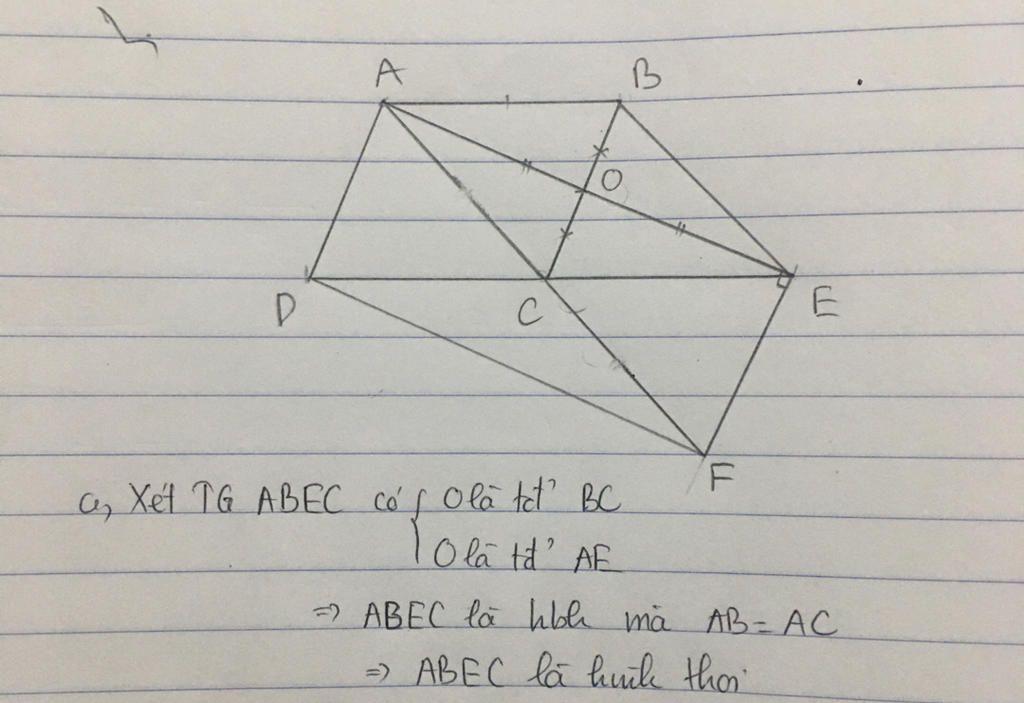 A B
O
D C E
F
a, Xét TG ABEC có { O là tđ' BC
O là tđ' AE
=> ABEC là hbh mà AB = AC
=> ABEC là hình thoi